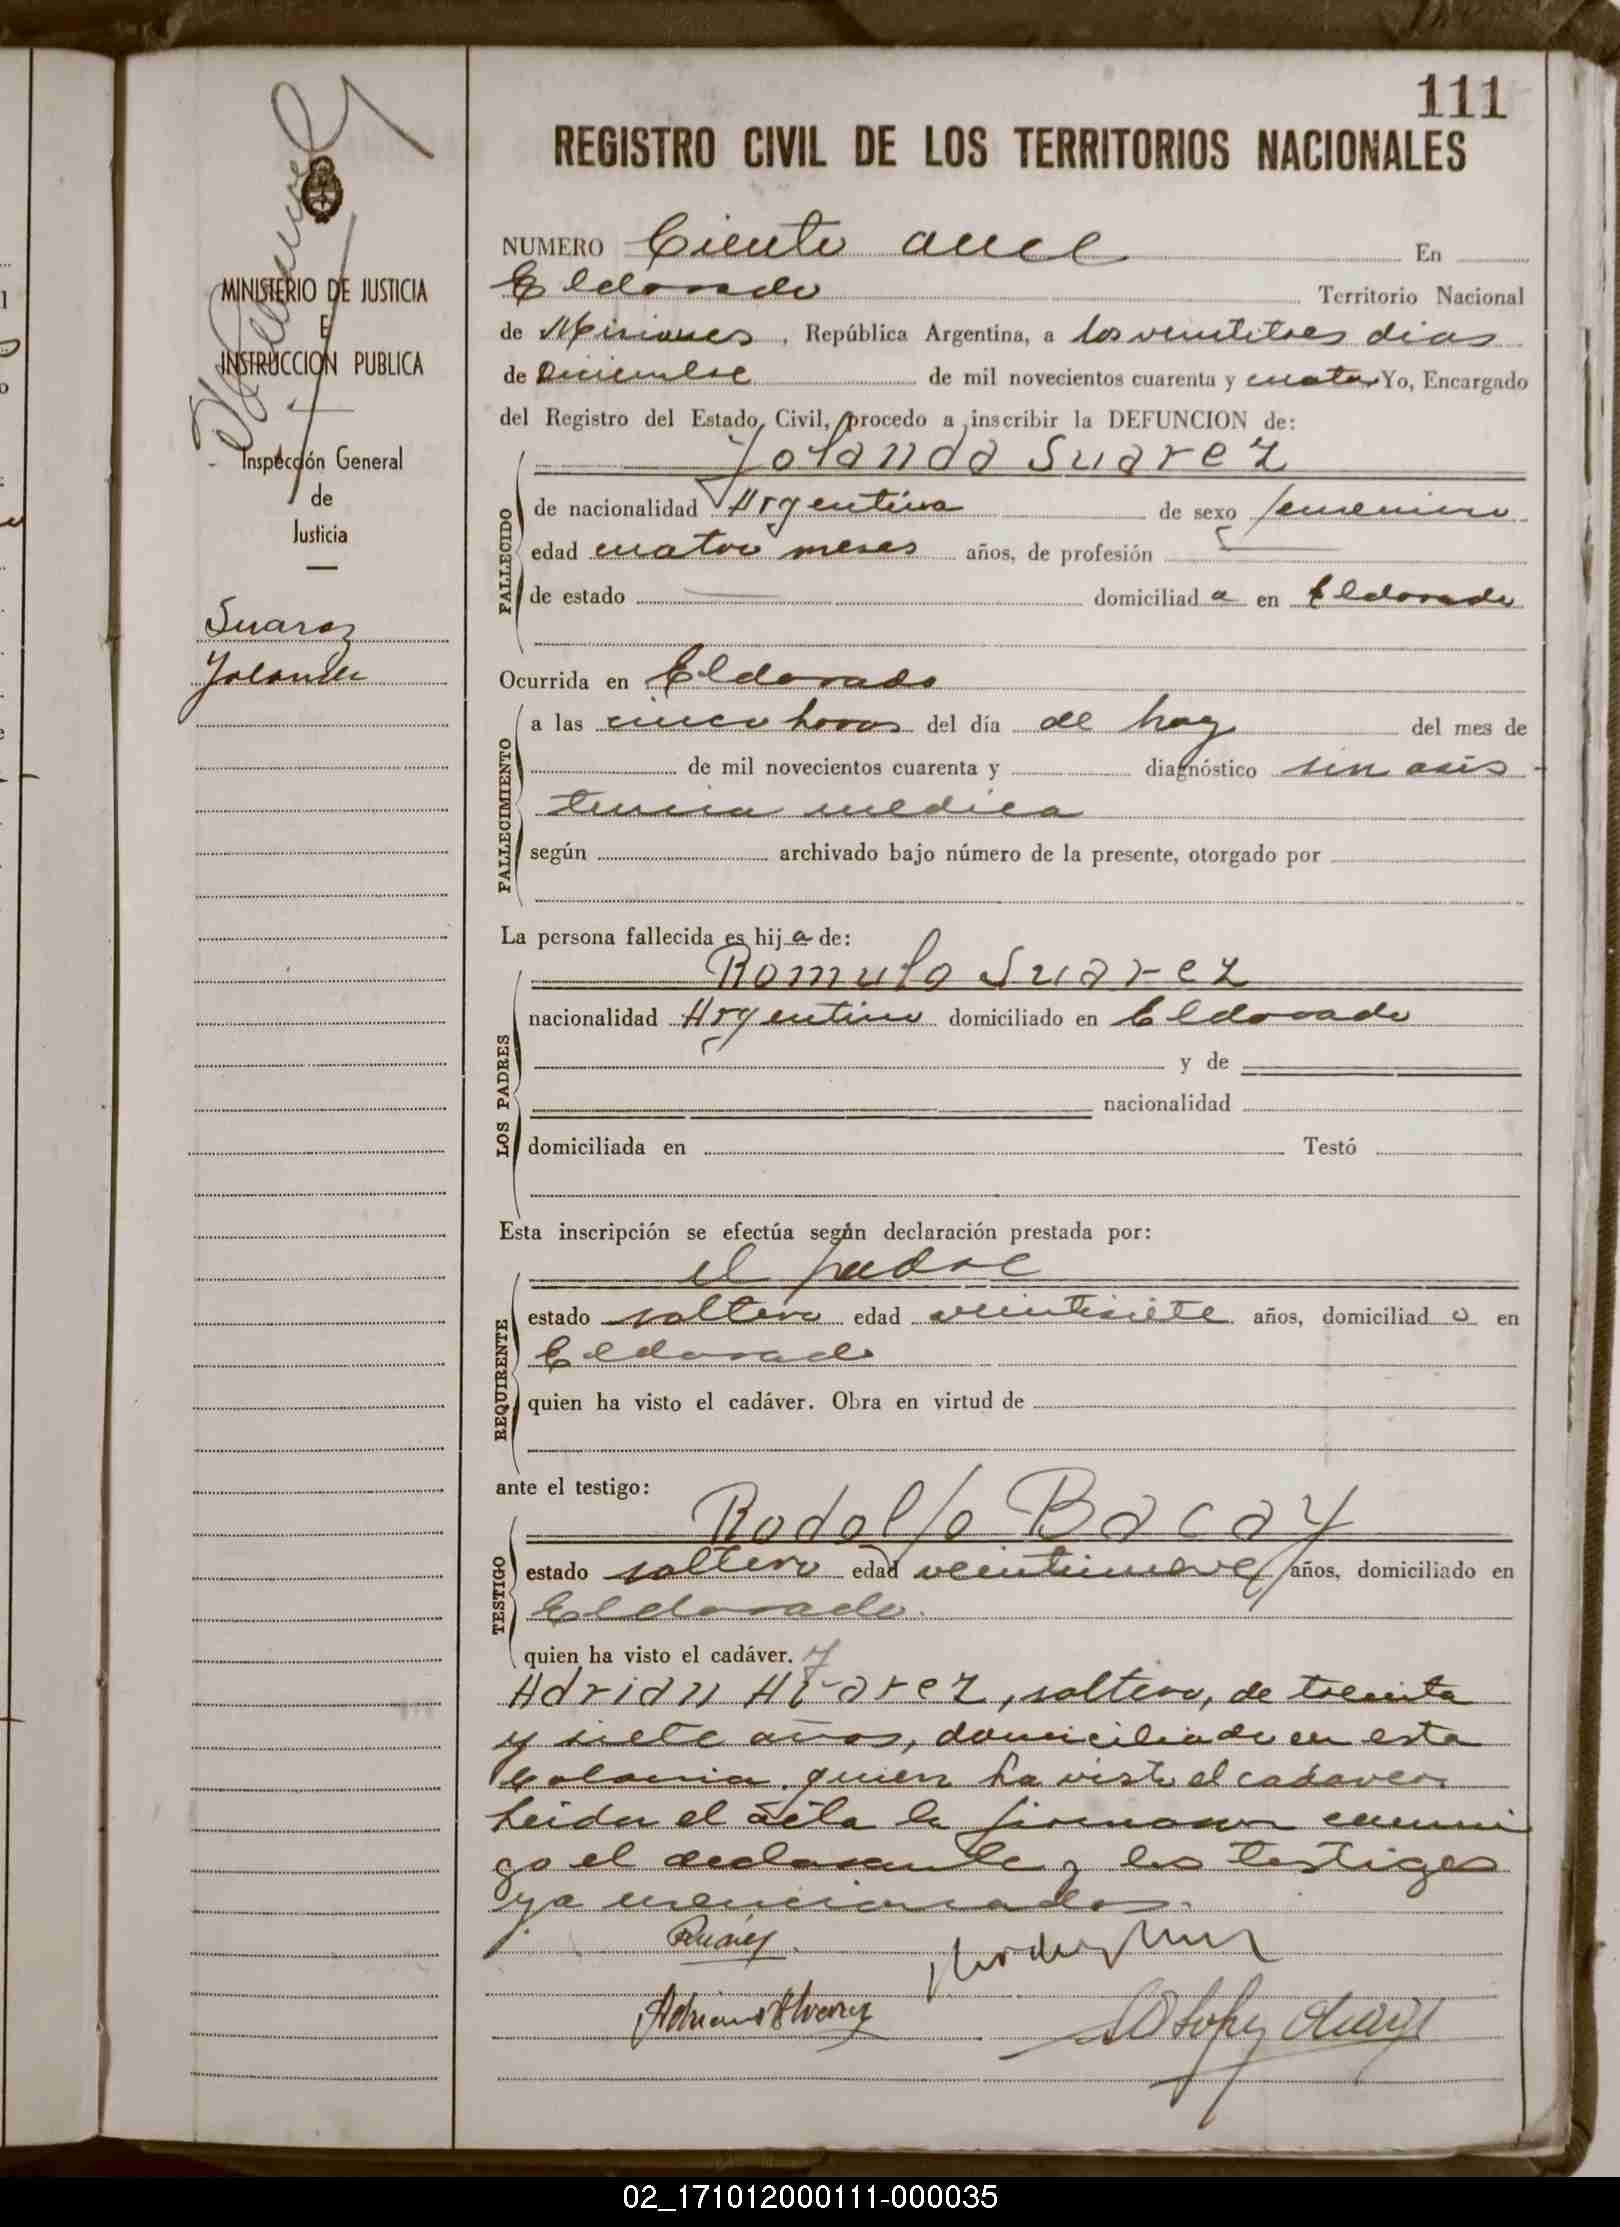 111
REGISTRO CIVIL DE LOS TERRITORIOS NACIONALES
MINISTERIO DE JUSTICIA
E
INSTRUCCION PUBLICA
Inspección General
de
Justicia
Suarez
Yolanda
NUMERO Ciento once En
Eldorado Territorio Nacional
de Misiones, República Argentina, a los veintitres dias
de Diciembre de mil novecientos cuarenta y cuatro Yo, Encargado
del Registro del Estado Civil, procedo a inscribir la DEFUNCION de:
Yolanda Suarez
FALLECIDO
de nacionalidad Argentina de sexo femenino
edad cuatro meses años, de profesión
de estado domiciliada en Eldorado
Ocurrida en Eldorado
FALLECIMIENTO
a las cinco horas del día de hoy del mes de
de mil novecientos cuarenta y diagnóstico sin asis
tencia medica
según archivado bajo número de la presente, otorgado por
La persona fallecida es hija de:
Romulo Suarez
LOS PADRES
nacionalidad Argentino domiciliado en Eldorado
y de
nacionalidad
domiciliada en Testó
Esta inscripción se efectúa según declaración prestada por:
el padre
REQUIRENTE
estado soltero edad veintisiete años, domiciliado en
Eldorado
quien ha visto el cadáver. Obra en virtud de
ante el testigo:
Rodolfo Bacay
TESTIGO
estado soltero edad veintinueve años, domiciliado en
Eldorado.
quien ha visto el cadáver. y
Adrian Alvarez, soltero, de treinta
y siete años, domiciliado en esta
Colonia, quien ha visto el cadaver.
Leida el acta la firman conmi
go el declarante y los testigos
ya mencionados.
Adriano Alvarez
02_171012000111-000035